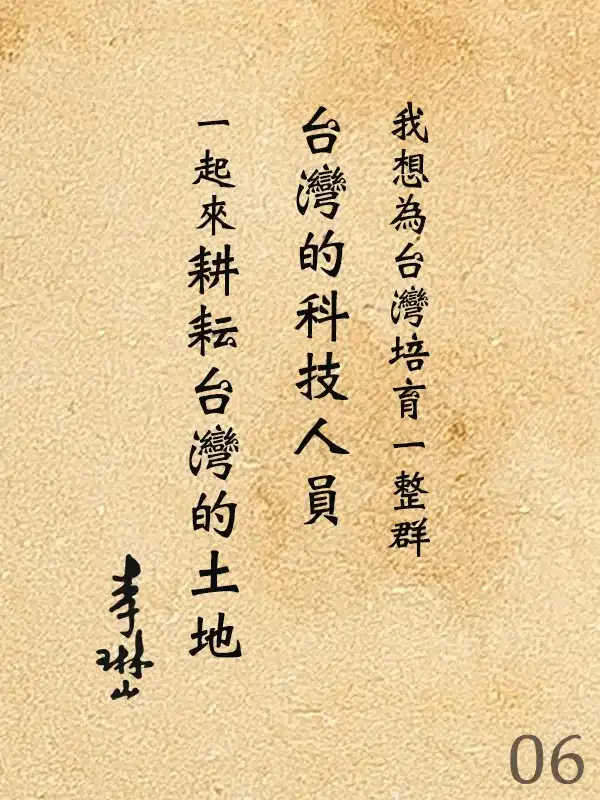 我想為台灣培育一整群
台灣的科技人員
一起來耕耘台灣的土地
李琳山
06